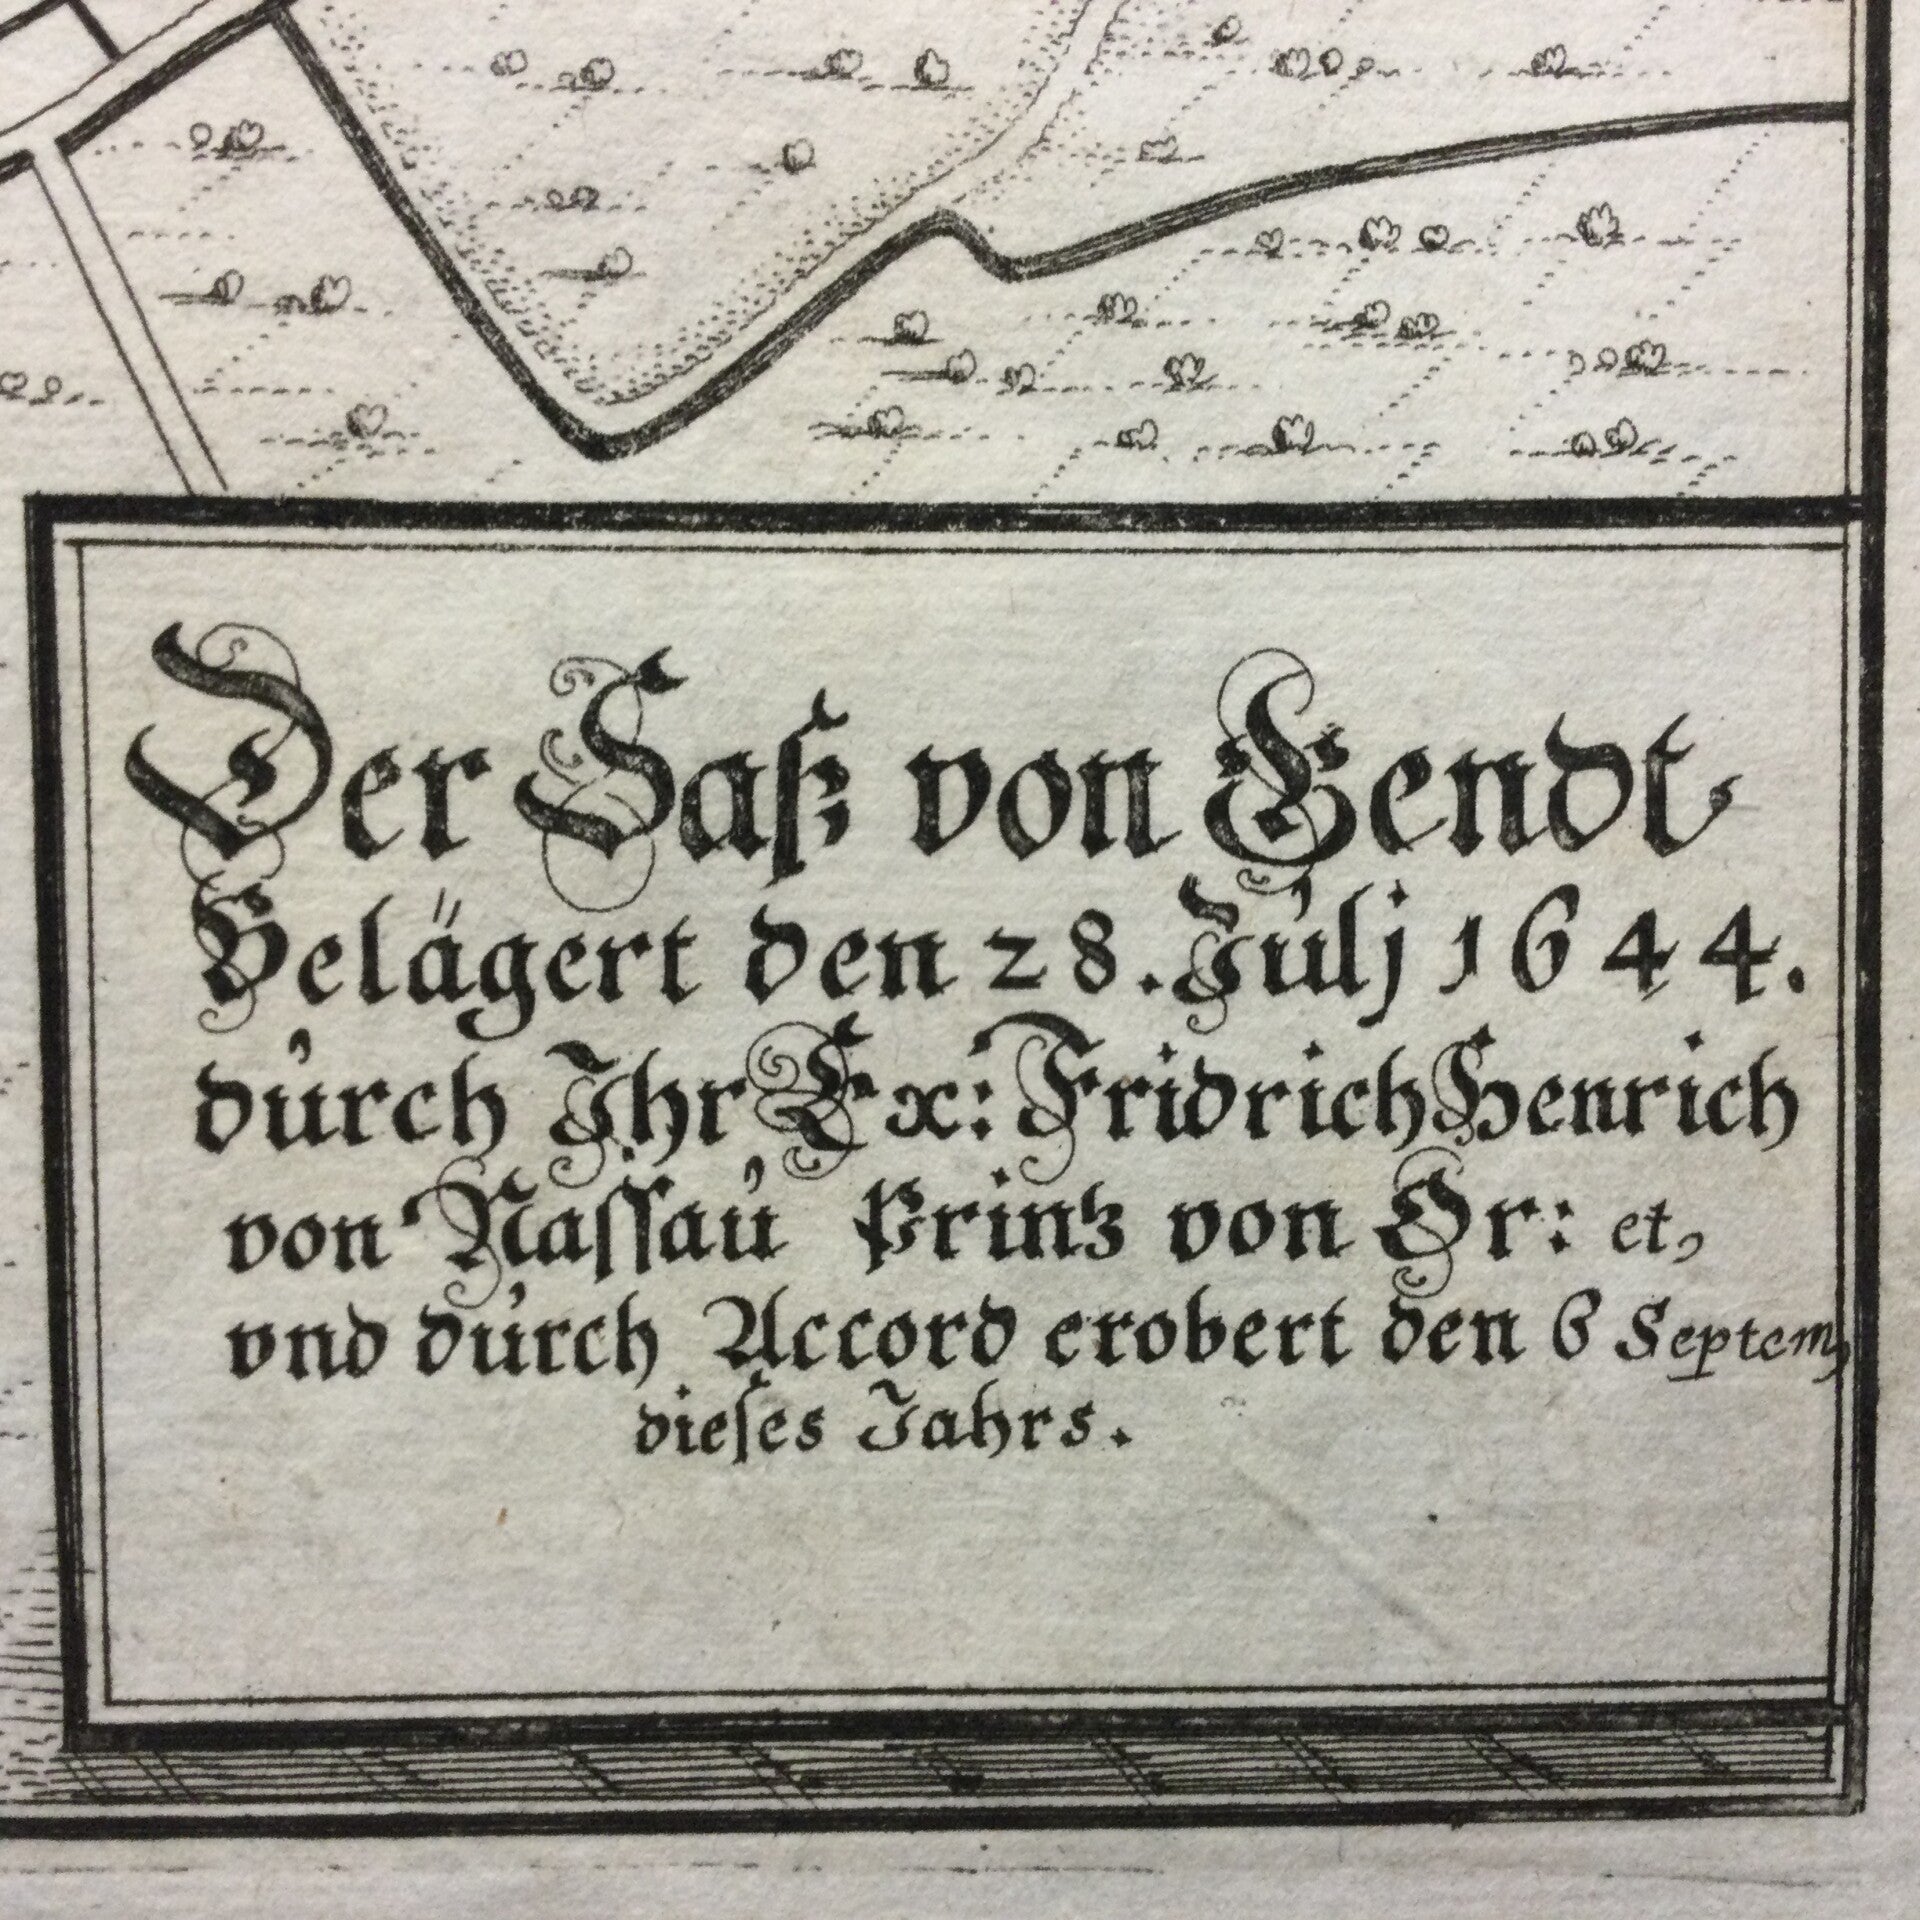 Der Saß von Gendt
Belägert den 28. Julj 1644.
durch Ihr Ex: Fridrich Henrich
von Nassau Printz von Or: et,
vnd durch Accord erobert den 6 Septem,
dieses Jahrs.